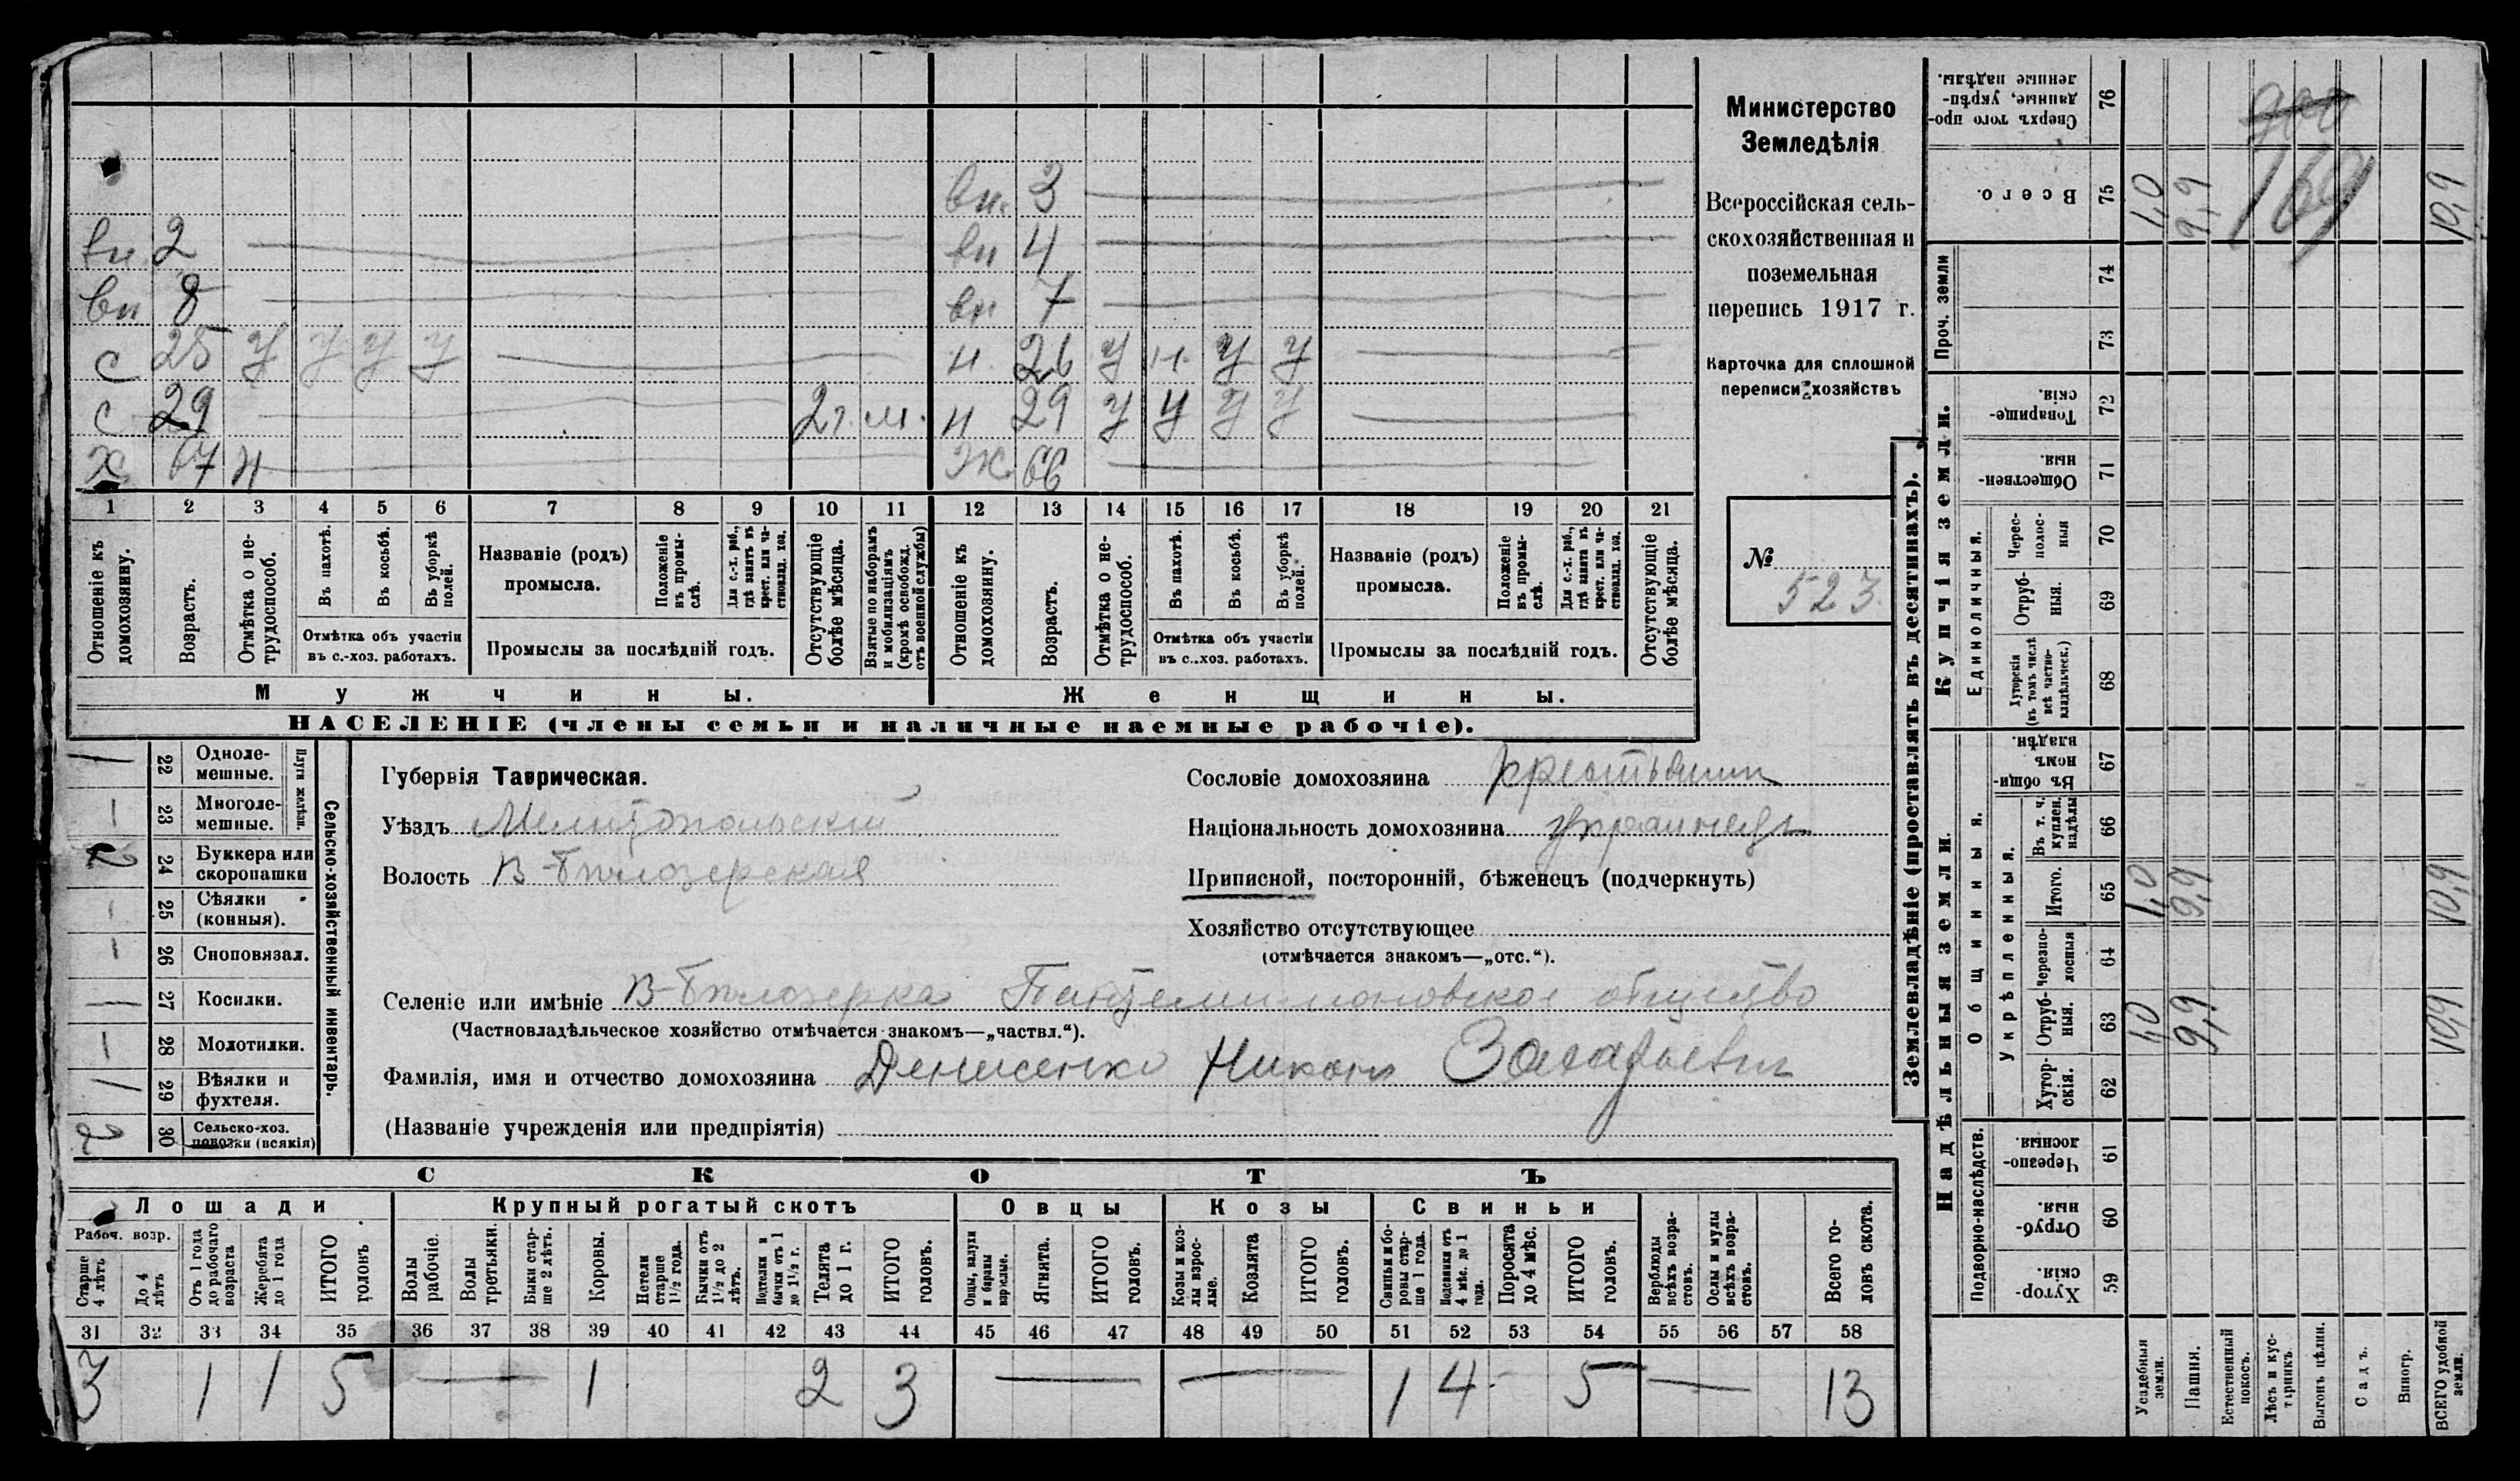 вн. 3
вн 2 вн 4
вн 8 вн 7
с 25 у у у у н. 26 у н. у у
с 29 2 г. м. н 29 у у у у
х 67 н ж 66
1 2 3 4 5 6 7 8 9 10 11 12 13 14 15 16 17 18 19 20 21
Отношеніе къ домохозяину.
Возрастъ.
Отмѣтка о не-трудоспособ.
Въ пахотѣ.
Въ косьбѣ.
Въ уборкѣ полей.
Отмѣтка объ участіи въ с.-хоз. работахъ.
Названіе (родъ) промысла.
Положеніе въ промы-слѣ.
Для с.-х. раб., гдѣ занятъ въ крест. или ча-стновлад. хоз.
Промыслы за послѣдній годъ.
Отсутствующіе болѣе мѣсяца.
Взятые по наборамъ и мобилизаціямъ (кромѣ освобожд. отъ военной службы)
Отношеніе къ домохозяину.
Возрастъ.
Отмѣтка о не-трудоспособ.
Въ пахотѣ.
Въ косьбѣ.
Въ уборкѣ полей.
Отмѣтка объ участіи въ с.-хоз. работахъ.
Названіе (родъ) промысла.
Положеніе въ промы-слѣ.
Для с.-х. раб., гдѣ занята въ крест. или ча-стновлад. хоз.
Промыслы за послѣдній годъ.
Отсутствующіе болѣе мѣсяца.
Мужчины. Женщины.
НАСЕЛЕНІЕ (члены семьи и наличные наемные рабочіе).
Министерство
Земледѣлія
Всероссійская сель-
скохозяйственная и
поземельная
перепись 1917 г.
Карточка для сплошной
переписи хозяйствъ
№
523.
22 Одноле-мешные.
23 Многоле-мешные.
Плуги желѣзн.
2 24 Буккера или скоропашки
25 Сѣялки (конныя).
26 Сноповязал.
27 Косилки.
28 Молотилки.
29 Вѣялки и фухтеля.
2 30 Сельско-хоз. повозки (всякія)
Сельско-хозяйственный инвентарь.
Губернія Таврическая.
Уѣздъ Мелитопольскій
Волость В-Бѣлозерская
Сословіе домохозяина крестьянин
Національность домохозяина украинецъ
Приписной, посторонній, бѣженецъ (подчеркнуть)
Хозяйство отсутствующее
(отмѣчается знакомъ—„отс.“).
Селеніе или имѣніе В-Бѣлозерка Пантелимоновское общество
(Частновладѣльческое хозяйство отмѣчается знакомъ—„частвл.“).
Фамилія, имя и отчество домохозяина Денисенко Никонъ Захарьевич
(Названіе учрежденія или предпріятія)
СКОТЪ
Лошади Крупный рогатый скотъ Овцы Козы Свиньи
Рабоч. возр.
Старше 4 лѣтъ
До 4 лѣтъ
Отъ 1 года до рабочаго возраста
Жеребята до 1 года
ИТОГО головъ
Волы рабочіе.
Волы третьяки.
Быки стар-ше 2 лѣтъ.
Коровы.
Нетели старше 1½ года.
Бычки отъ 1½ до 2 лѣтъ.
Подтелки и бычки отъ 1 до 1½ г.
Телята до 1 г.
ИТОГО головъ.
Овцы, валухи и бараны взрослые.
Ягнята.
ИТОГО головъ.
Козы и коз-лы взрос-лые.
Козлята
ИТОГО головъ.
Свиньи и бо-ровы стар-ше 1 года.
Подсвинки отъ 4 мѣс. до 1 года.
Поросята до 4 мѣс.
ИТОГО головъ.
Верблюды всѣхъ возра-стовъ.
Ослы и мулы всѣхъ возра-стовъ.
Всего го-ловъ скота.
31 32 33 34 35 36 37 38 39 40 41 42 43 44 45 46 47 48 49 50 51 52 53 54 55 56 57 58
3 1 1 5 — 1 2 3 — — 1 4 - 5 — 13
Землевладѣніе (проставлять въ десятинахъ).
Сверхъ того про-данные, укрѣп-ленные надѣлы. 76
Всего. 75 1,0 9,9 169 10,9
Проч. земли
74
73
Купчія земли.
Товарище-скія. 72
Обществен-ныя. 71
Единоличныя.
Черес-полос-ныя 70
Отруб-ныя. 69
Хуторскія (въ томъ числѣ всѣ частно-владѣльческ.) 68
Надѣльныя земли.
Общинныя.
Въ общи-номъ владѣн. 67
Укрѣпленныя.
Въ т. ч. куплен. надѣлы 66
Итого. 65 1,0 9,9 10,9
Черезпо-лосныя 64
Отруб-ныя. 63 1,0 9,9 10,9
Хутор-скія. 62
Подворно-наслѣдств.
Черезпо-лосныя. 61
Отруб-ныя. 60
Хутор-скія. 59
Усадебныя земли.
Пашня.
Естественный покосъ.
Лѣсъ и кус-тарникъ.
Выгонъ цѣлин.
Садъ.
Виногр.
ВСЕГО удобной земли.